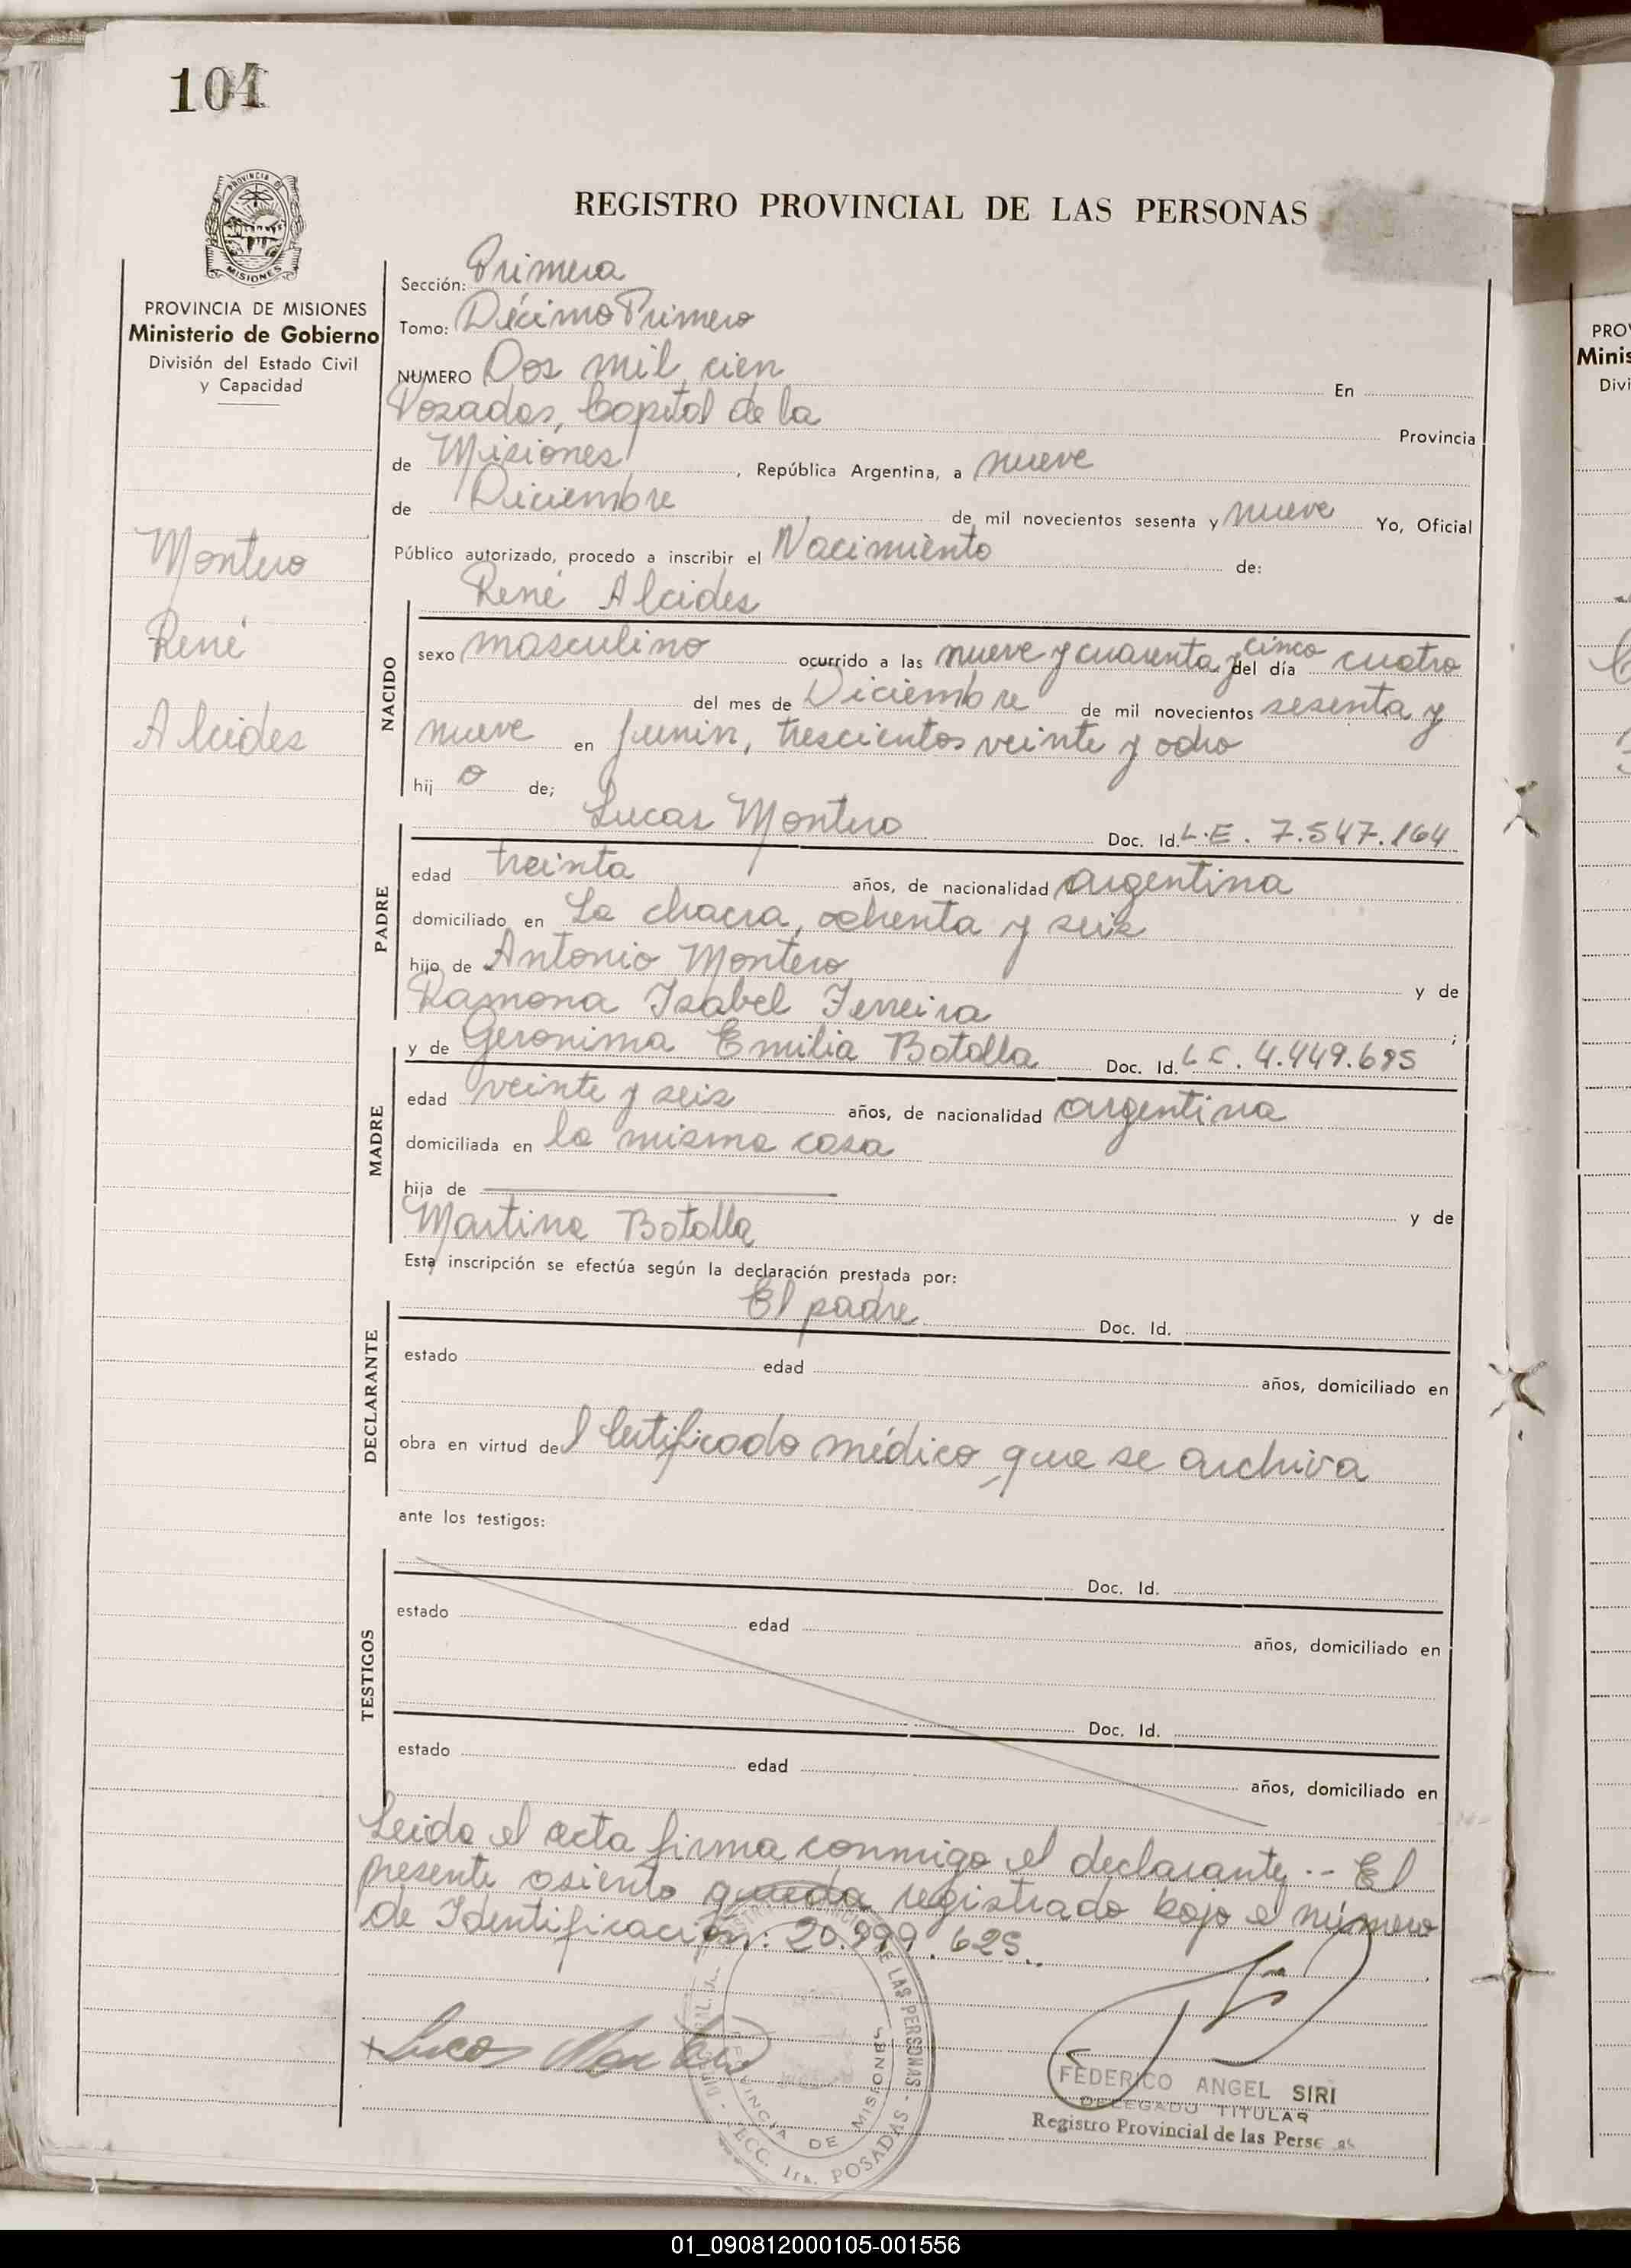 104
PROVINCIA DE
MISIONES
PROVINCIA DE MISIONES
Ministerio de Gobierno
División del Estado Civil
y Capacidad
Montero
René
Alcides
REGISTRO PROVINCIAL DE LAS PERSONAS
Sección: Primera
Tomo: Décimo Primero
NUMERO Dos mil cien En
Posadas, Capital de la Provincia
de Misiones, República Argentina, a nueve
de Diciembre de mil novecientos sesenta y nueve Yo, Oficial
Público autorizado, procedo a inscribir el Nacimiento de:
René Alcides
NACIDO
sexo masculino ocurrido a las nueve y cuarenta y cinco del día cuatro
del mes de Diciembre de mil novecientos sesenta y
nueve en Junin, trescientos veinte y ocho
hij o de;
Lucas Montero Doc. Id. L.E. 7.547.164
PADRE
edad treinta años, de nacionalidad argentina
domiciliado en La chacra, ochenta y seis
hijo de Antonio Montero y de
Ramona Isabel Ferreira ;
y de Geronima Emilia Botalla Doc. Id. L.C. 4.449.685
MADRE
edad veinte y seis años, de nacionalidad argentina
domiciliada en la misma casa
hija de y de
Martina Botalla
Esta inscripción se efectúa según la declaración prestada por:
El padre Doc. Id.
DECLARANTE
estado edad años, domiciliado en
obra en virtud del Certificado médico que se archiva
ante los testigos:
TESTIGOS
Doc. Id.
estado edad años, domiciliado en
Doc. Id.
estado edad años, domiciliado en
Leida el acta firma conmigo el declarante.-- El
presente asiento queda registrado bajo el número
de Identificación: 20.999.625..
Lucas Montero
DE LAS PERSONAS - SECC. 1ra. POSADAS -
PROVINCIA DE MISIONES
FEDERICO ANGEL SIRI
DELEGADO TITULAR
Registro Provincial de las Perse as
PROV
Minis
Divi
01_090812000105-001556